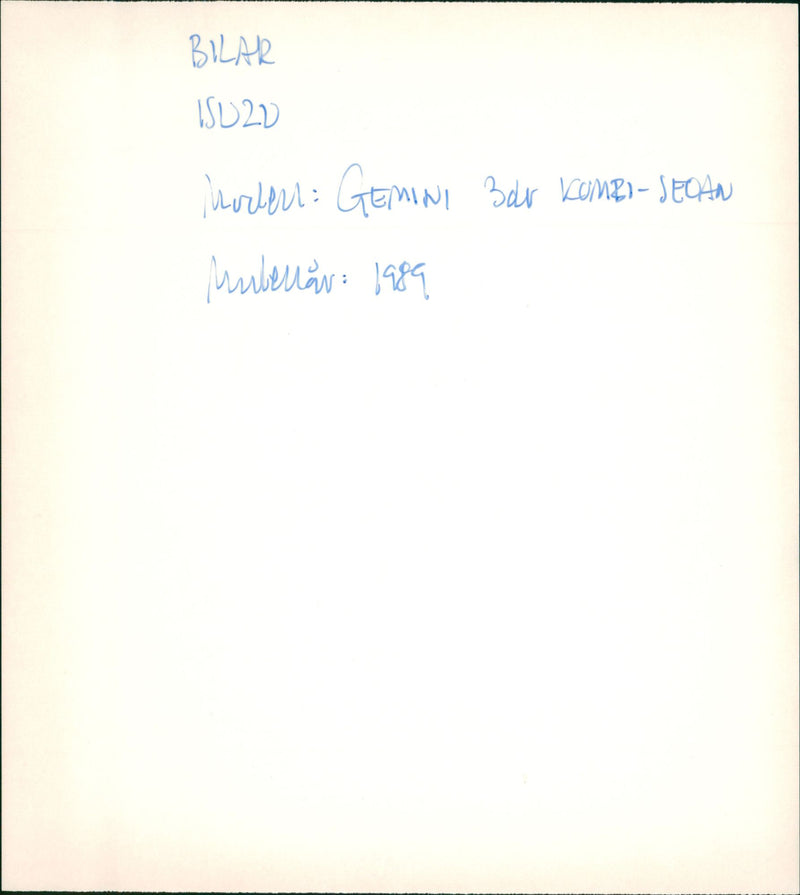 BILAR
ISUZU
Modell: GEMINI 3dr KOMBI-SEDAN
Modellår: 1989